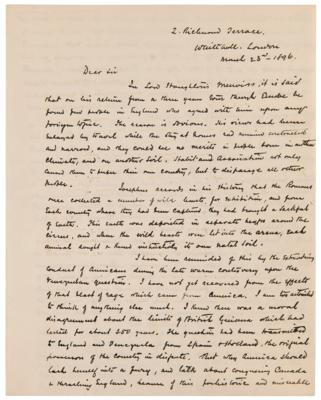 2. Richmond Terrace,
Whitehall. London
March 23rd 1896.
Dear Sir
In Lord Houghton's Memoirs, it is said
that on his return from a three years tour through Europe he
found few people in England who agreed with him upon any
foreign topic. The reason is obvious. His views had been
enlarged by travel while the they at homes had remained contracted
and narrow, and they could see no merits in people born in another
climate, and on another soil. Habit and Association not only
caused them to prefer their own country, but to disparage all other
people.
Josephus records in his History that the Romans
once collected a number of wild beasts, for exhibition, and from
each country where they had been captured they had brought a sackful
of earth. This earth was deposited in separate heaps around the
circus, and when the wild beasts were let into the arena, each
animal sought & found instinctively its own natal soil.
I have been reminded of this by the astonishing
conduct of Americans during the late warm controversy upon the
Venezuelan question. I have not yet recovered from the effects
of that blast of rage which came from America. I am too astounded
to think of anything else much. I know there was a small
disagreement about the limits of British Guiana which had
lasted for about 250 years. The question had been transmitted
to England and Venezuela from Spain & Holland, the original
possessors of the country in dispute. But why America should
lash herself into a fury, and talk about conquering Canada
& thrashing England, because of this prehistoric and miserable